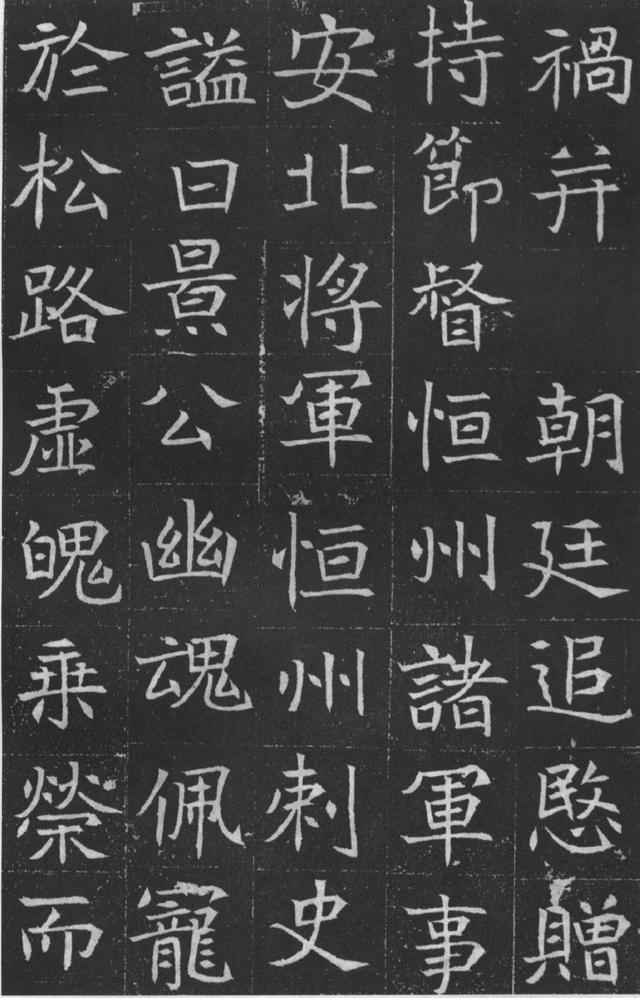 禍并朝廷追愍贈
持節督恒州諸軍事
安北將軍恒州刺史
謚曰景公幽魂佩寵
於松路虛魄乗榮而